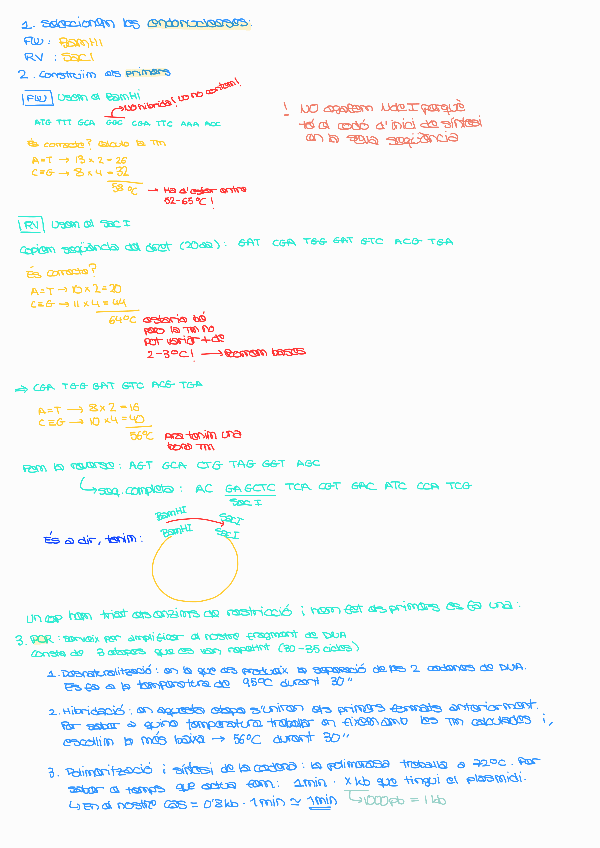 1. Seleccionem les endonucleases:
FW: BamHI
RV: SacI
2. Construim els primers
FW Usem el BamHI
→ No hibrida i no no contem!
ATG TTT GCA GGC CGA TTC AAA ACC
! NO agafem NdeI perquè
té el codó d'inici de síntesi
en la seva seqüència
És correcte? calculo la Tm
A=T → 13 x 2 = 26
C≡G → 8 x 4 = 32
58°C → Ha d'estar entre
52-65°C!
RV Usem el SacI
Copiem seqüència del dret (20aa): GAT CGA TGG GAT GTC ACG TGA
És correcte?
A=T → 10 x 2 = 20
C≡G → 11 x 4 = 44
64°C estaria bé
pero la Tm no
pot variar + de
2-3°C! → Borrem bases
⇒ CGA TGG GAT GTC ACG TGA
A=T → 8 x 2 = 16
C≡G → 10 x 4 = 40
56°C Ara tenim una
bona Tm
Fem la reversa: AGT GCA CTG TAG GGT AGC
↳ seq. completa: AC GAGCTC TCA CGT GAC ATC CCA TCG
SacI
BamHI SacI
BamHI SacI
És a dir, tenim:
Un cop hem triat els enzims de restricció i hem fet els primers es fa una:
3. PCR: serveix per amplificar el nostre fragment de DNA
consta de 3 etapes que es van repetint (30-35 cicles)
1. Desnaturalització: en la que es produeix la separació de les 2 cadenes de DNA.
Es fa a la temperatura de 95°C durant 30"
2. Hibridació: en aquesta etapa s'uniran els primers formats anteriorment.
Per saber a quina temperatura treballar en fixem amb les Tm calculades i,
escollim la més baixa → 56°C durant 30"
3. Polimerització i síntesi de la cadena: la polimerasa treballa a 72°C. Per
saber el temps que actua fem: 1min · x kb que tingui el plasmidi.
↳ En el nostre cas = 0'8kb · 1 min ≃ 1min ↳ 1000pb = 1kb